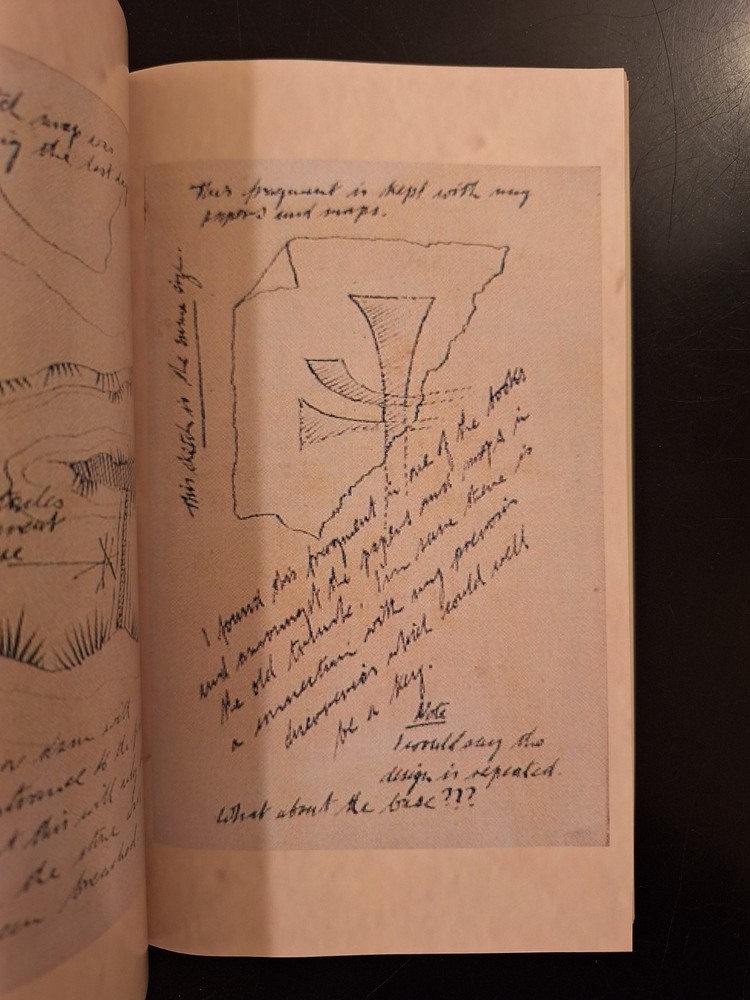 map was
the last
This fragment is kept with my
papers and maps.
This sketch is the same size.
I found this fragment in one of the books
and amongst the papers and maps in
the old trunk. I'm sure there is
a connection with my previous
discoveries which could well
be a key.
Note
I would say the
design is repeated.
What about the base???
will
to the
this will
the stone
breached